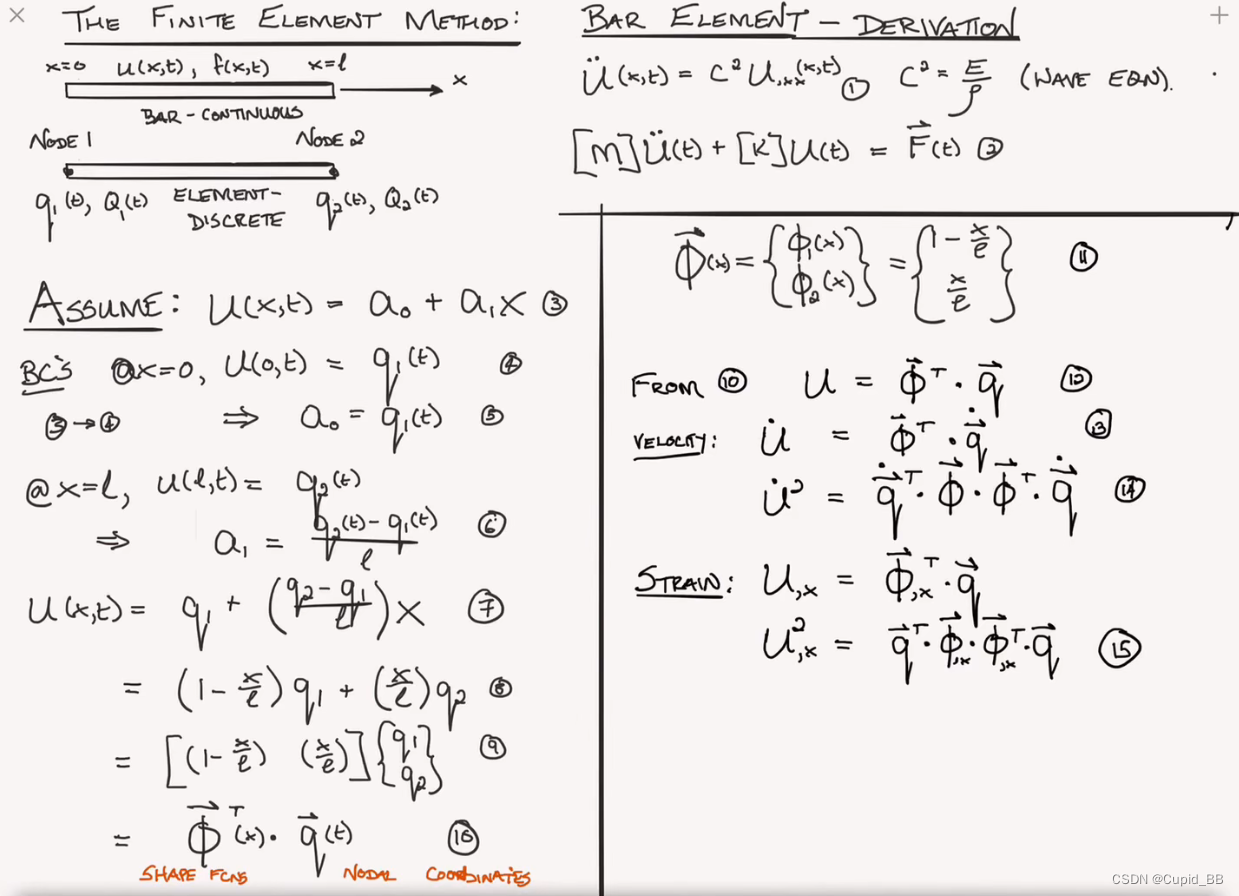 THE FINITE ELEMENT METHOD:
x=0 u(x,t), f(x,t) x=l
x
BAR - CONTINUOUS
NODE 1 NODE 2
q₁(t), Q₁(t) ELEMENT- DISCRETE q₂(t), Q₂(t)
ASSUME: u(x,t) = a₀ + a₁x ③
BC's @x=0, u(0,t) = q₁(t) ④
③→④ ⇒ a₀ = q₁(t) ⑤
@x=l, u(l,t) = q₂(t)
⇒ a₁ = (q₂(t) - q₁(t))/l ⑥
u(x,t) = q₁ + ((q₂ - q₁)/l)x ⑦
= (1 - x/l) q₁ + (x/l) q₂ ⑧
= [(1 - x/l) (x/l)] {q₁ q₂} ⑨
= ϕ⃗ᵀ(x) · q⃗(t) ⑩
SHAPE FCNS NODAL COORDINATES
BAR ELEMENT - DERIVATION
ü(x,t) = c² u,ₓₓ(x,t) ① c² = E/ρ (WAVE EQN).
[M]ü(t) + [K]u(t) = F⃗(t) ②
ϕ⃗(x) = {ϕ₁(x) ϕ₂(x)} = {1 - x/l x/l} ⑪
FROM ⑩ u = ϕ⃗ᵀ · q⃗ ⑫
VELOCITY: u̇ = ϕ⃗ᵀ · q⃗̇ ⑬
u̇² = q⃗̇ᵀ · ϕ⃗ · ϕ⃗ᵀ · q⃗̇ ⑭
STRAIN: u,ₓ = ϕ⃗,ₓᵀ · q⃗
u²,ₓ = q⃗ᵀ · ϕ⃗,ₓ · ϕ⃗,ₓᵀ · q⃗ ⑮
CSDN @Cupid_BB